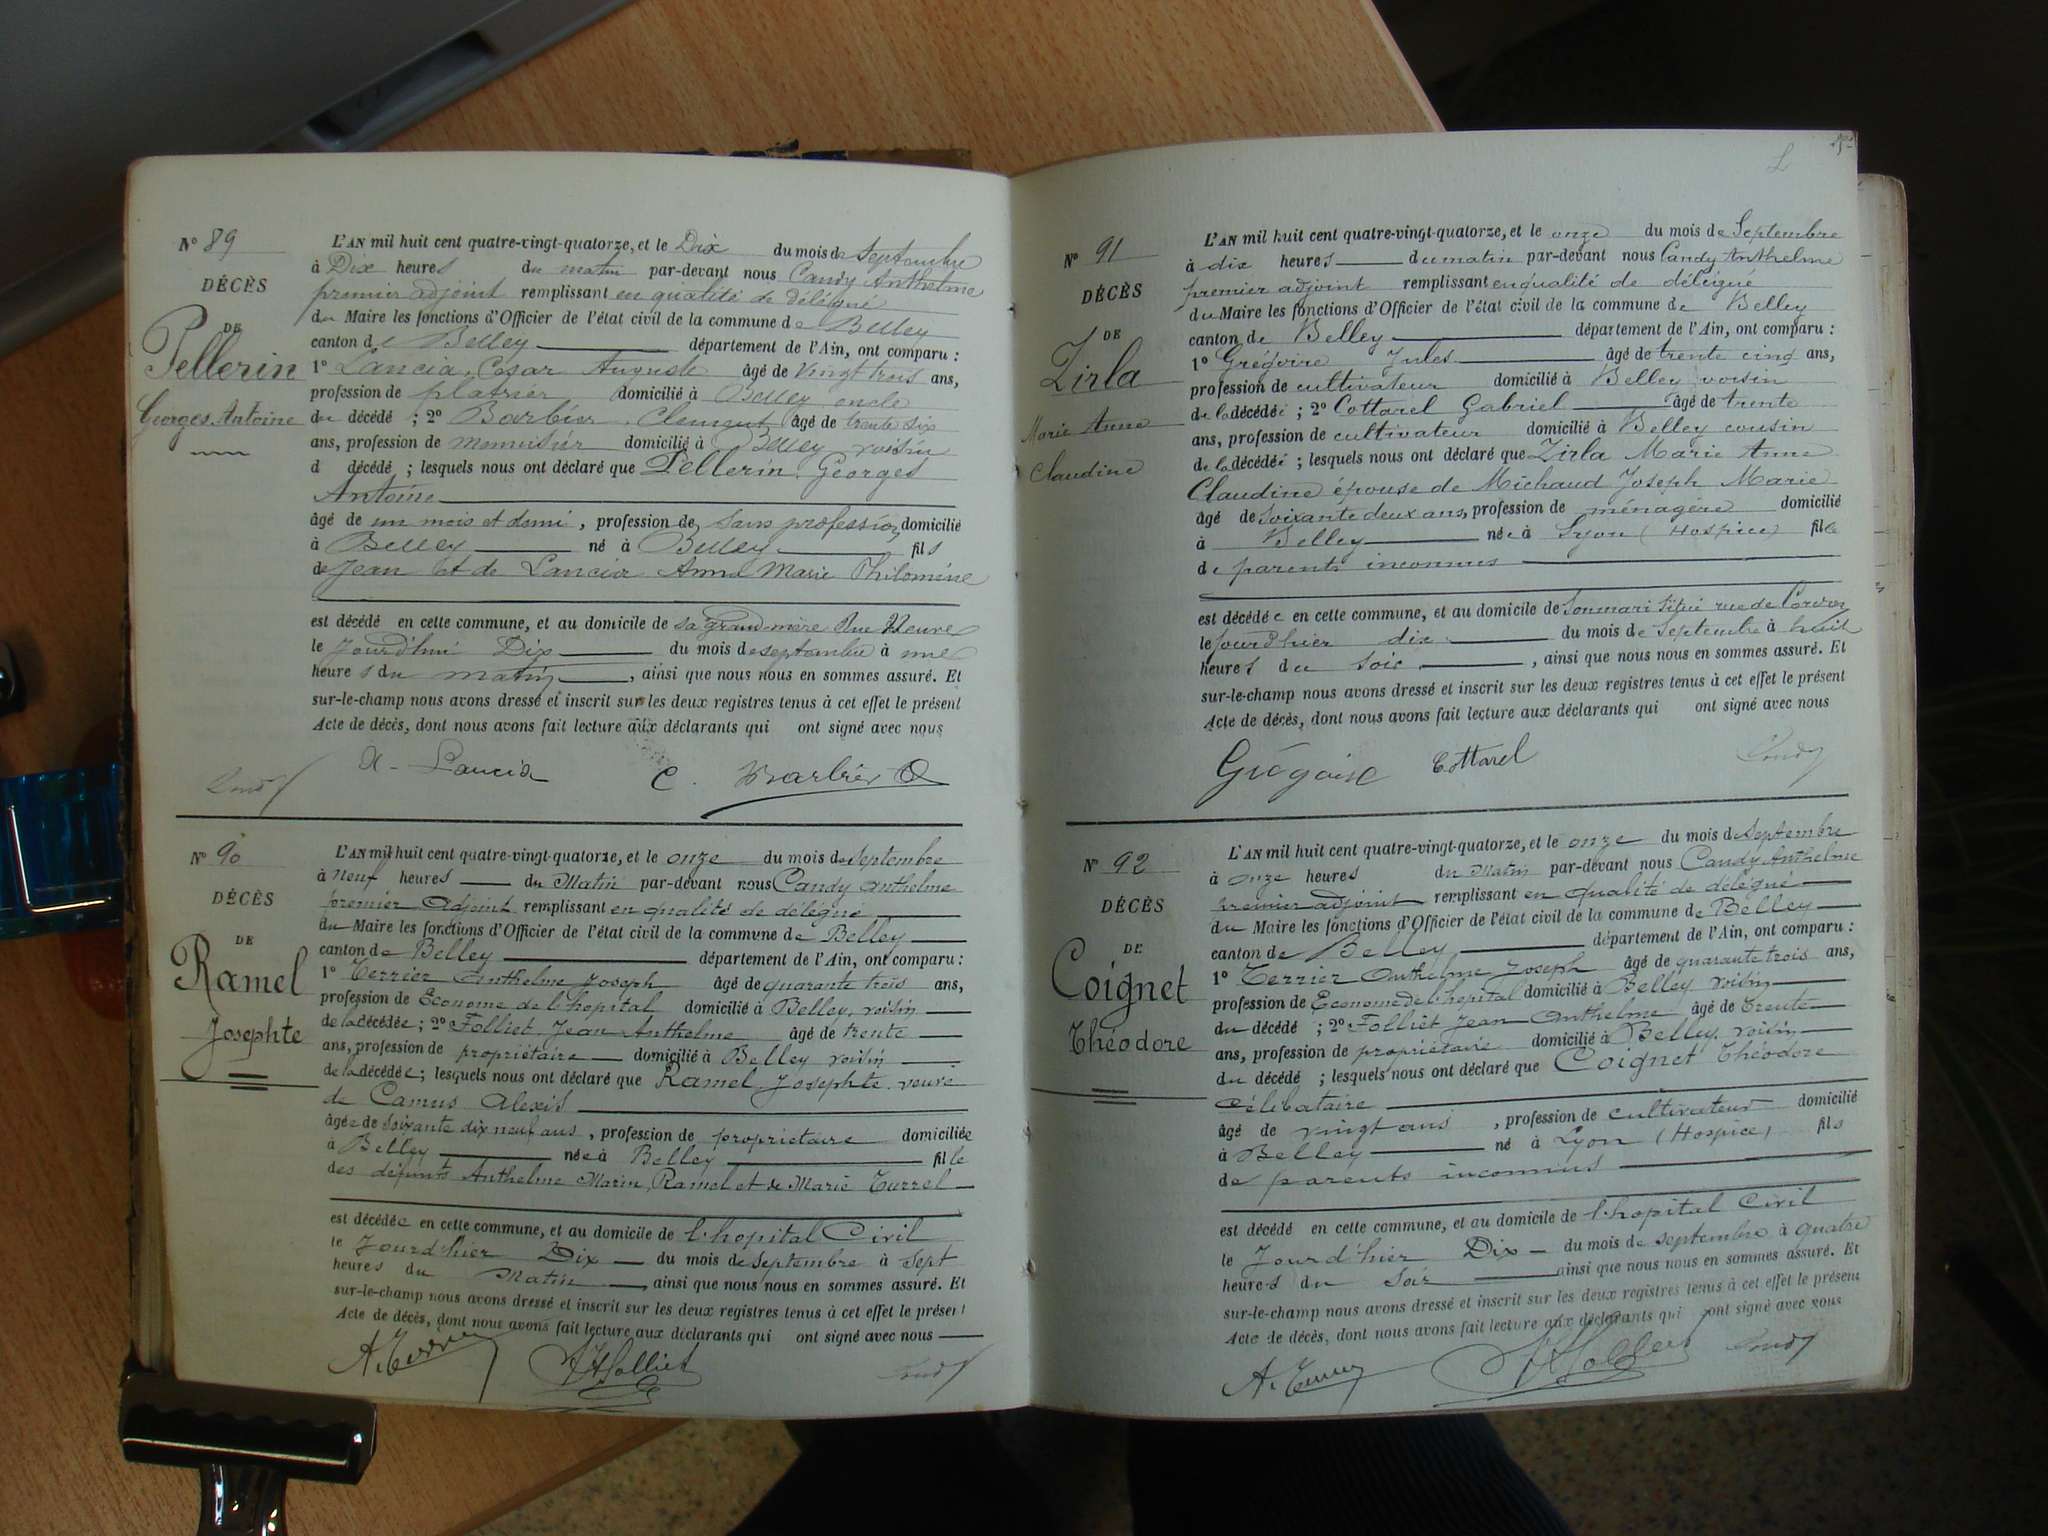 Nº 89
DÉCÈS
DE
Pellerin
Georges Antoine
L'AN mil huit cent quatre-vingt-quatorze, et le Dix du mois de Septembre
à Dix heures du matin par-devant nous Candy Anthelme
premier adjoint remplissant en qualité de délégué
du Maire les fonctions d'Officier de l'état civil de la commune de Belley
canton de Belley département de l'Ain, ont comparu :
1º Lancia, Cesar Auguste âgé de vingt trois ans,
profession de platrier domicilié à Belley oncle
du décédé ; 2º Barbier, Clement âgé de trente six
ans, profession de menuisier domicilié à Belley voisin
d décédé ; lesquels nous ont déclaré que Pellerin Georges
Antoine
âgé de un mois et demi, profession de sans profession domicilié
à Belley né à Belley fils
de Jean et de Lancia Anna Marie Philomène
est décédé en cette commune, et au domicile de sa grand-mère Rue Neuve
le Jourd'hui Dix du mois de septembre à une
heures du matin, ainsi que nous nous en sommes assuré. Et
sur-le-champ nous avons dressé et inscrit sur les deux registres tenus à cet effet le présent
Acte de décès, dont nous avons fait lecture aux déclarants qui ont signé avec nous
A. Lancia C. Barbier
Nº 90
DÉCÈS
DE
Ramel
Josephte
L'AN mil huit cent quatre-vingt-quatorze, et le onze du mois de septembre
à neuf heures du Matin par-devant nous Candy Anthelme
premier Adjoint remplissant en qualité de délégué
du Maire les fonctions d'Officier de l'état civil de la commune de Belley
canton de Belley département de l'Ain, ont comparu :
1º Terrier Anthelme Joseph âgé de quarante trois ans,
profession de Econome de l'hopital domicilié à Belley, voisin
de la décédée ; 2º Folliet Jean Anthelme âgé de trente
ans, profession de propriétaire domicilié à Belley voisin
de la décédée ; lesquels nous ont déclaré que Ramel Josephte veuve
de Camus Alexis
âgée de soixante dix neuf ans, profession de propriétaire domiciliée
à Belley née à Belley fille
des défunts Anthelme Marin, Ramel et de Marie Turrel
est décédée en cette commune, et au domicile de l'hopital Civil
le Jourd'hier Dix du mois de septembre à sept
heures du Matin, ainsi que nous nous en sommes assuré. Et
sur-le-champ nous avons dressé et inscrit sur les deux registres tenus à cet effet le présent
Acte de décès, dont nous avons fait lecture aux déclarants qui ont signé avec nous
A. Terrier JAFolliet
Nº 91
DÉCÈS
DE
Zirla
Marie Anne
Claudine
L'AN mil huit cent quatre-vingt-quatorze, et le onze du mois de Septembre
à dix heures du matin par-devant nous Candy Anthelme
premier adjoint remplissant en qualité de délégué
du Maire les fonctions d'Officier de l'état civil de la commune de Belley
canton de Belley département de l'Ain, ont comparu :
1º Grégoire Jules âgé de trente cinq ans,
profession de cultivateur domicilié à Belley voisin
de la décédée ; 2º Cottarel Gabriel âgé de trente
ans, profession de cultivateur domicilié à Belley cousin
de la décédée ; lesquels nous ont déclaré que Zirla Marie Anne
Claudine épouse de Michaud Joseph Marie
âgé de soixante deux ans, profession de ménagère domicilié
à Belley née à Lyon (Hospice) fille
de parents inconnus
est décédée en cette commune, et au domicile de son mari situé rue de
le Jourd'hier dix du mois de Septembre à huit
heures du soir, ainsi que nous nous en sommes assuré. Et
sur-le-champ nous avons dressé et inscrit sur les deux registres tenus à cet effet le présent
Acte de décès, dont nous avons fait lecture aux déclarants qui ont signé avec nous
Grégoire Cottarel
Nº 92
DÉCÈS
DE
Coignet
Théodore
L'AN mil huit cent quatre-vingt-quatorze, et le onze du mois de septembre
à onze heures du Matin par-devant nous Candy Anthelme
premier adjoint remplissant en qualité de délégué
du Maire les fonctions d'Officier de l'état civil de la commune de Belley
canton de Belley département de l'Ain, ont comparu :
1º Terrier Anthelme Joseph âgé de quarante trois ans,
profession de Econome de l'hopital domicilié à Belley voisin
du décédé ; 2º Folliet Jean Anthelme âgé de trente
ans, profession de propriétaire domicilié à Belley, voisin
du décédé ; lesquels nous ont déclaré que Coignet Théodore
célibataire
âgé de vingt ans, profession de cultivateur domicilié
à Belley né à Lyon (Hospice) fils
de parents inconnus
est décédé en cette commune, et au domicile de l'hopital Civil
le Jourd'hier Dix du mois de septembre à quatre
heures du soir ainsi que nous nous en sommes assuré. Et
sur-le-champ nous avons dressé et inscrit sur les deux registres tenus à cet effet le présent
Acte de décès, dont nous avons fait lecture aux déclarants qui ont signé avec nous
A. Terrier